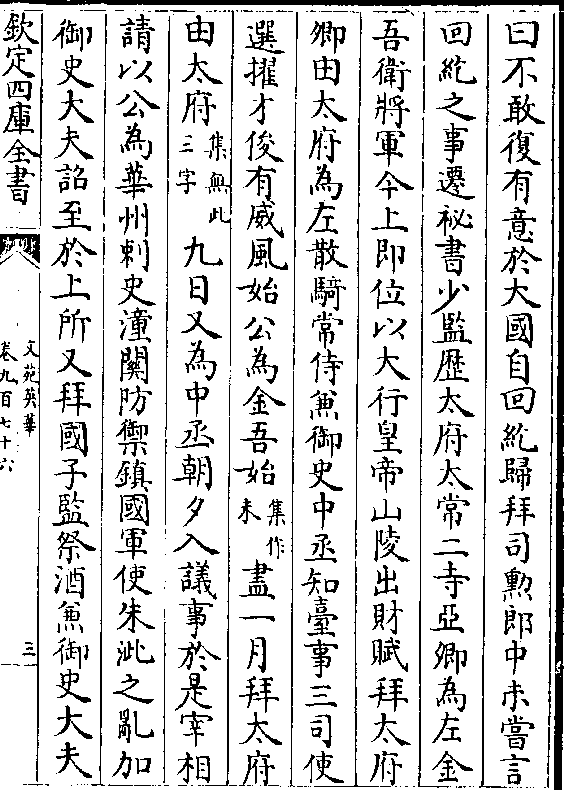 曰不敢復有意於大國自回紇歸拜司勲郎中未嘗言
回紇之事遷祕書少監歷太府太常二寺亞卿為左金
吾衛將軍今上即位以大行皇帝山陵出財賦拜太府
卿由太府為左散騎常侍兼御史中丞知臺事三司使
選擢才俊有威風始公為金吾始集作未盡一月拜太府
由太府集無此三字九日又為中丞朝夕入議事於是宰相
請以公為華州刺史潼關防禦鎮國軍使朱泚之亂加
御史大夫詔至於上所又拜國子監祭酒兼御史大夫
欽定四庫全書
文苑英華
卷九百七十六
三